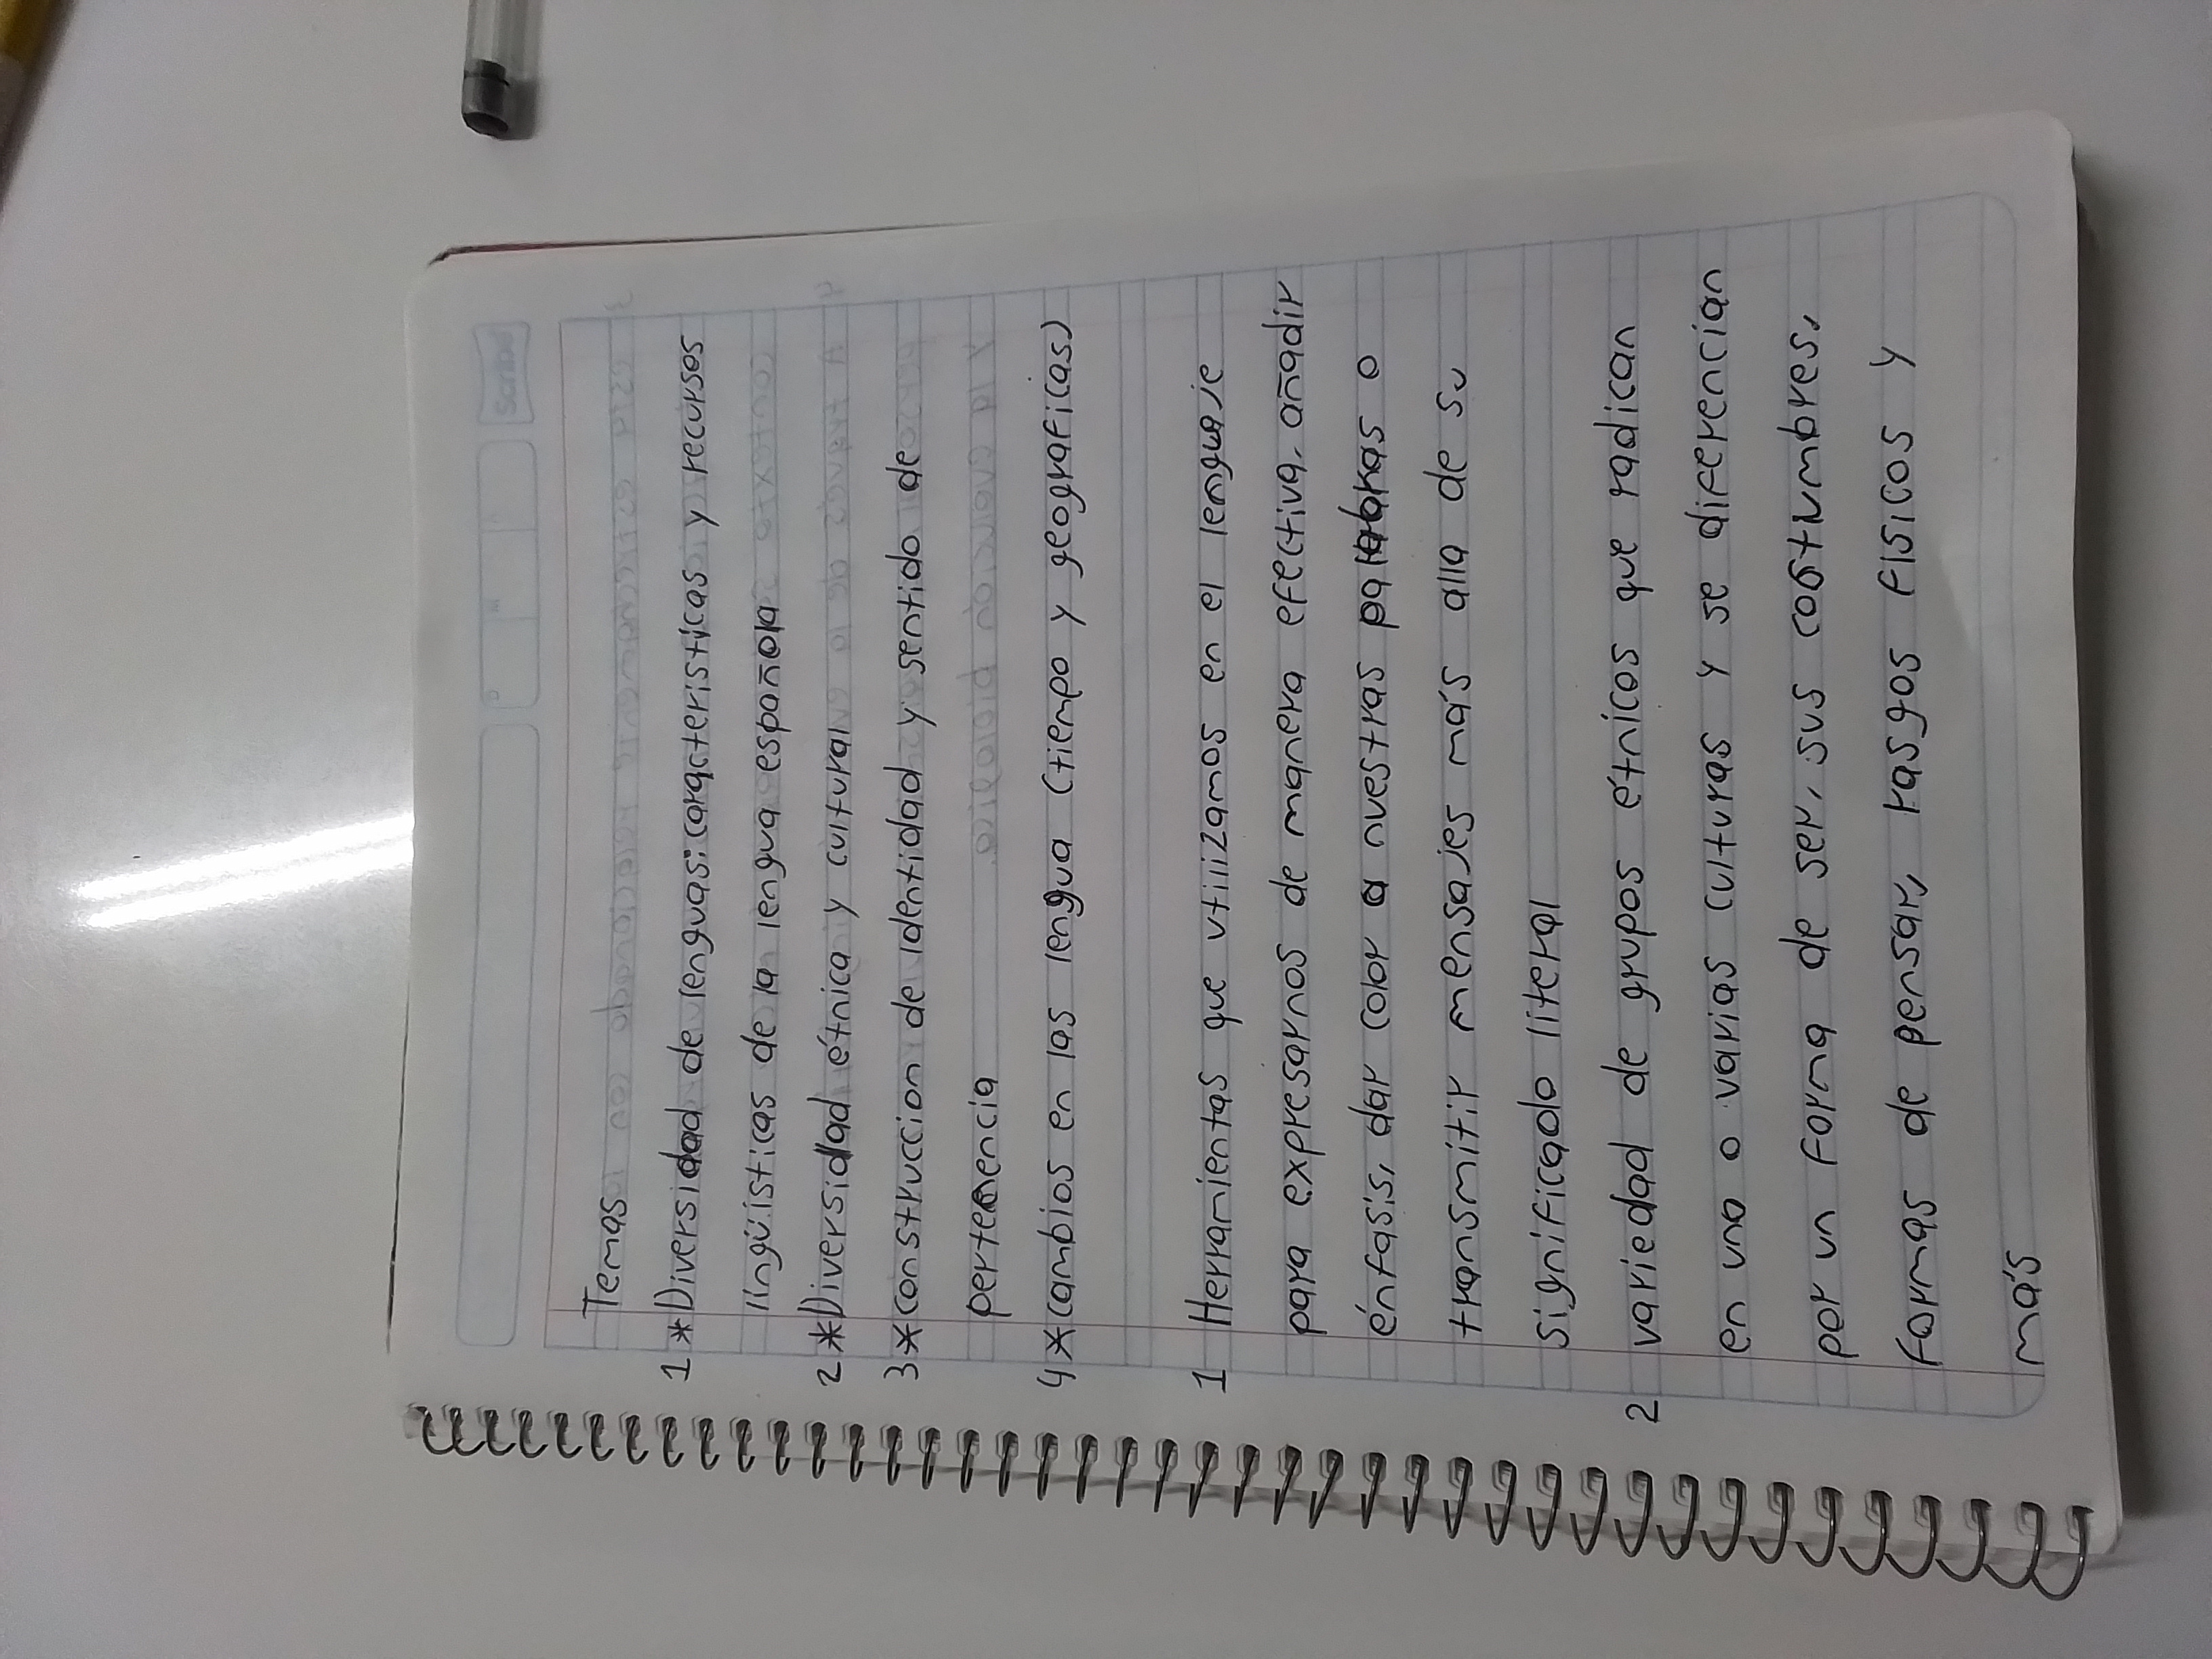 Scribe
Temas
1 * Diversidad de lenguas: características y recursos
lingüísticas de la lengua española
2 * Diversidad étnica y cultural
3 * construccion de identidad y sentido de
pertenencia
4 * cambios en las lengua (tiempo y geograficas)
1 Herramientas que utilizamos en el lenguaje
para expresarnos de manera efectiva, añadir
énfasis, dar color a nuestras palabras o
transmitir mensajes más alla de su
significado literal
2 variedad de grupos étnicos que radican
en una o varias culturas y se diferencian
por un forma de ser, sus costumbres,
formas de pensar, rasgos fisicos y
más